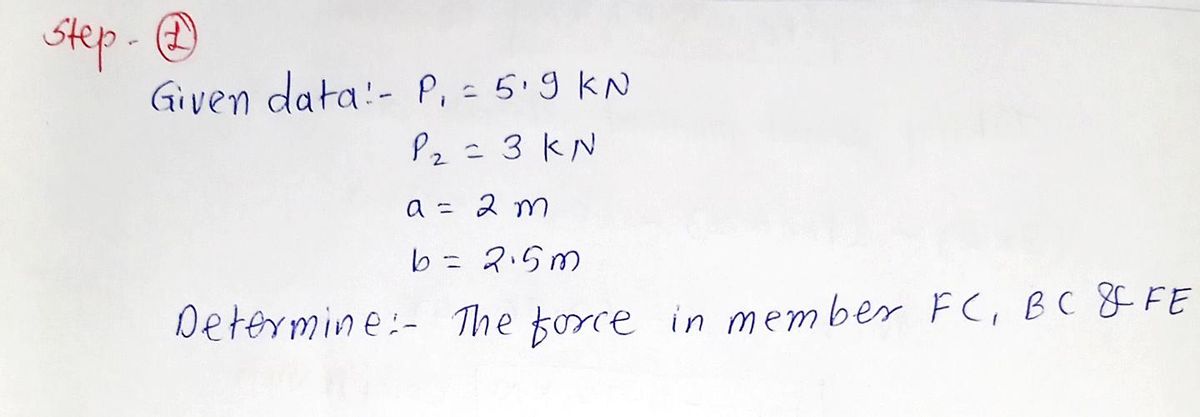 Step - ①
Given data:- P₁ = 5.9 kN
P₂ = 3 kN
a = 2 m
b = 2.5m
Determine:- The force in member FC, BC & FE